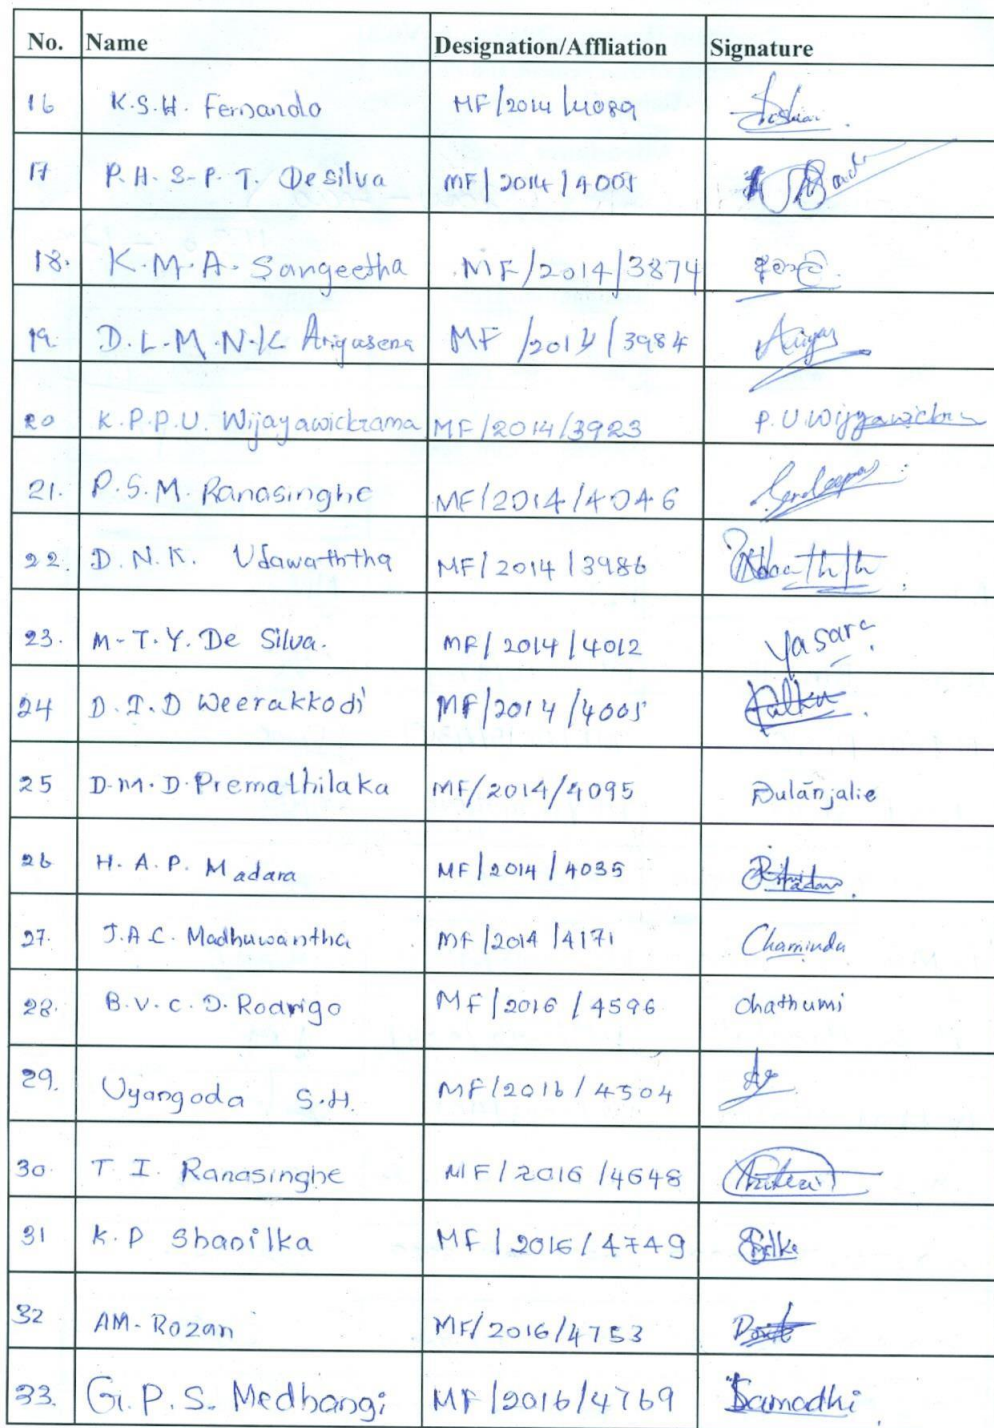 No. Name Designation/Affliation Signature
16 K.S.H. Fernando MF/2014/4089
17 P.H.S.P.T. De silva MF/2014/4001
18. K.M.A. Sangeetha MF/2014/3874
19. D.L.M.N.K Ariyasena MF/2014/3984
20 K.P.P.U. Wijayawickrama MF/2014/3923 P.U Wijyawickra
21. P.S.M. Ranasinghe MF/2014/4046
22. D.N.K. Udawaththa MF/2014/3986
23. M.T.Y. De Silva. MF/2014/4012 Yasara
24 D.I.D Weerakkodi MF/2014/4005
25 D.M.D. Premathilaka MF/2014/4095 Dulanjalie
26 H.A.P. Madara MF/2014/4035
27. J.A.C. Madhuwantha MF/2014/4171 Chaminda
28. B.V.C.D. Rodrigo MF/2016/4596 Chathumi
29. Uyangoda S.H. MF/2016/4504
30. T.I. Ranasinghe MF/2016/4648
31 K.P Shanilka MF/2016/4749
32 AM. Rozan MF/2016/4753
33. G.P.S. Medhangi MF/2016/4769 Samodhi